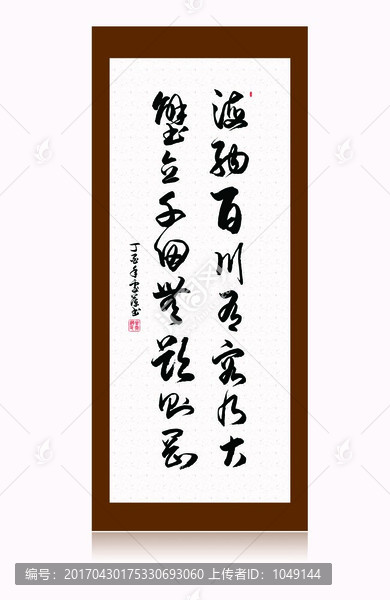 海納百川有容乃大
壁立千仞無欲則剛
丁酉年書
编号：20170430175330693060 上传者ID：1049144